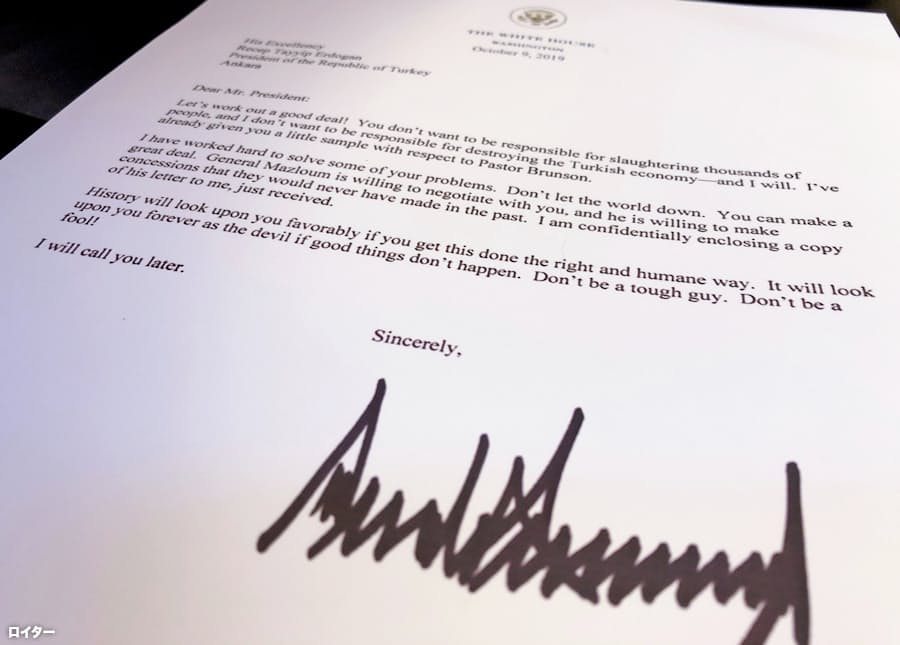 THE WHITE HOUSE
WASHINGTON
October 9, 2019
His Excellency
Recep Tayyip Erdogan
President of the Republic of Turkey
Ankara
Dear Mr. President:
Let's work out a good deal! You don't want to be responsible for slaughtering thousands of
people, and I don't want to be responsible for destroying the Turkish economy—and I will. I've
already given you a little sample with respect to Pastor Brunson.
I have worked hard to solve some of your problems. Don't let the world down. You can make a
great deal. General Mazloum is willing to negotiate with you, and he is willing to make
concessions that they would never have made in the past. I am confidentially enclosing a copy
of his letter to me, just received.
History will look upon you favorably if you get this done the right and humane way. It will look
upon you forever as the devil if good things don't happen. Don't be a tough guy. Don't be a
fool!
I will call you later.
Sincerely,
ロイター